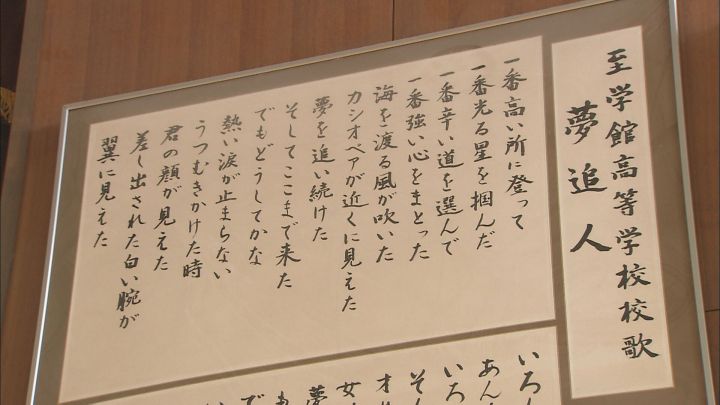 至学館高等学校校歌
夢追人
一番高い所に登って
一番光る星を掴んだ
一番辛い道を選んで
一番強い心をまとった
海を渡る風が吹いた
カシオペアが近くに見えた
夢を追い続けた
そしてここまで来た
でもどうしてかな
熱い涙が止まらない
うつむきかけた時
君の顔が見えた
差し出された白い腕が
翼に見えた
いろん
あん
いろ
そん
オリ
女
夢
も
で